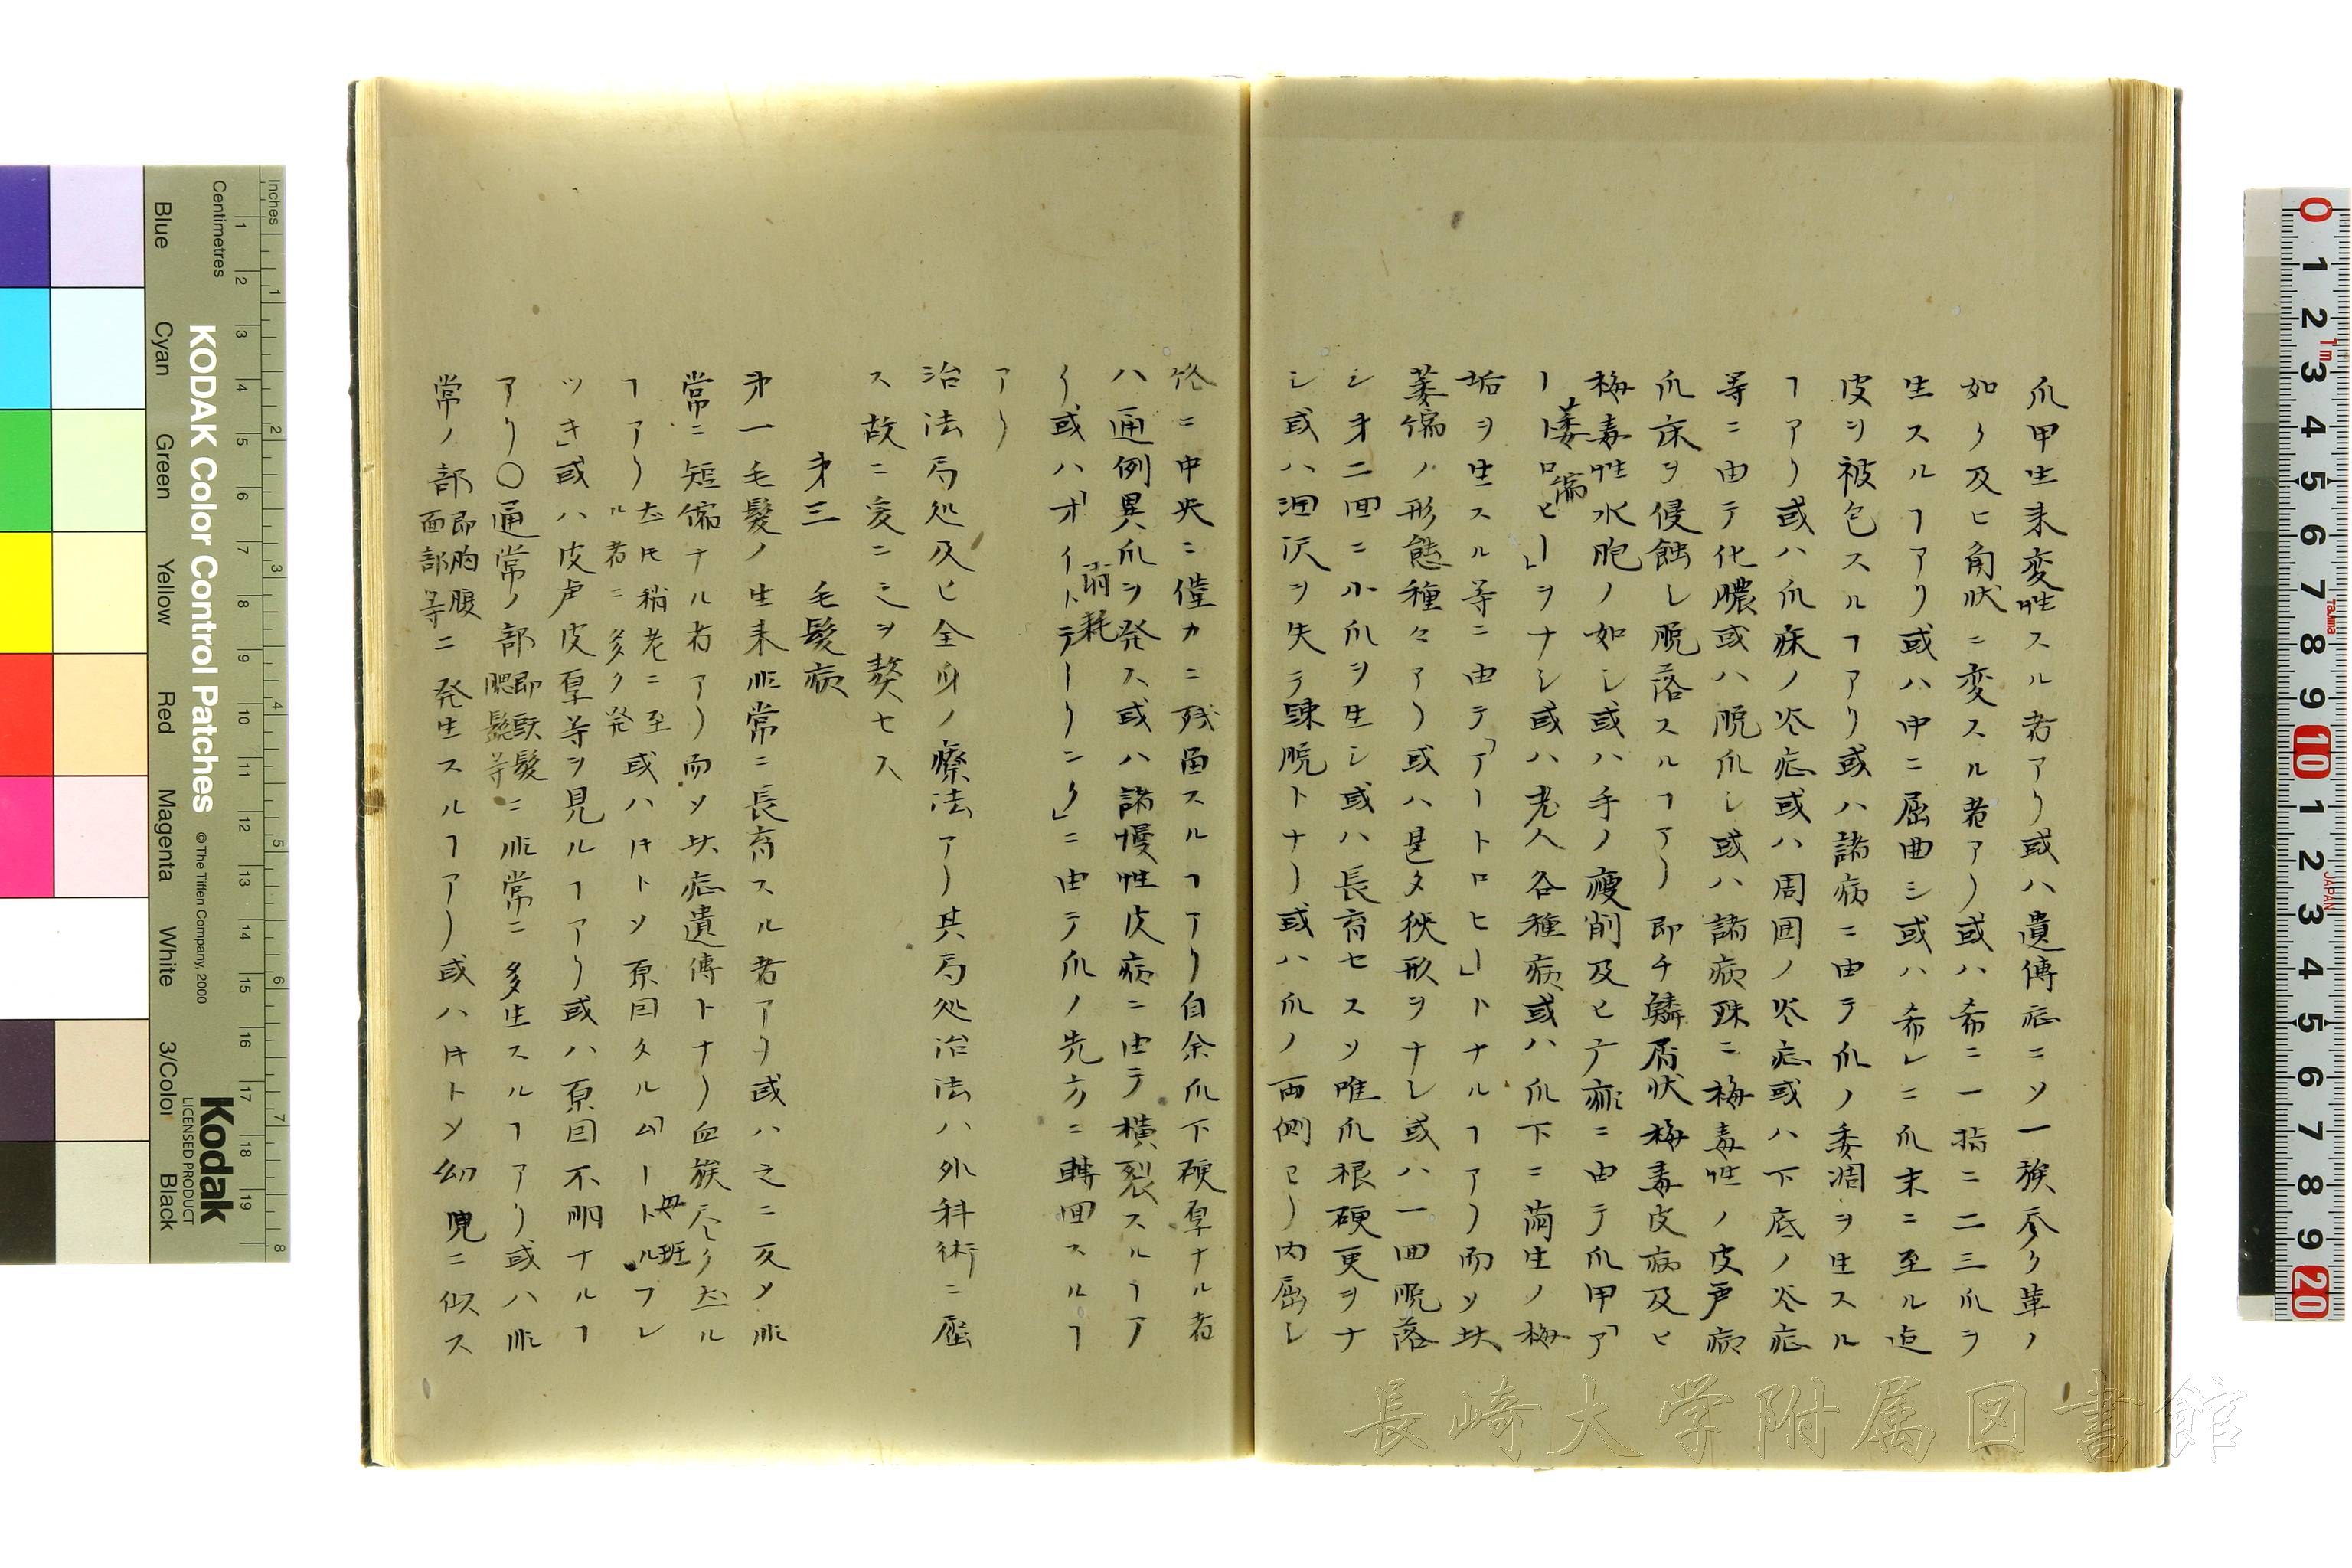 爪甲生来変性スル者アリ或ハ遺傳症ニシテ一族尽ク葦ノ
如ク及ヒ角状ニ変スル者アリ或ハ希ニ一指ニ二三爪ヲ
生スルヿアリ或ハ中ニ屈曲シ或ハ希レニ爪末ニ至ル迠
皮ヲ被包スルヿアリ或ハ諸病ニ由テ爪ノ委凋ヲ生スル
ヿアリ或ハ爪床ノ炎症或ハ周囲ノ炎症或ハ下底ノ炎症
等ニ由テ化膿或ハ脱爪シ或ハ諸病殊ニ梅毒性ノ皮膚病
爪床ヲ侵蝕シ脱落スルヿアリ即チ鱗屑状梅毒皮病及ヒ
梅毒性水胞ノ如シ或ハ手ノ痩削及ヒ亦ニ由テ爪甲「ア
ートロヒー」ヲナシ或ハ老人各種病或ハ爪下ニ菌生ノ梅
萎縮
垢ヲ生スル等ニ由テ「アートロヒー」トナルヿアリ而シテ此
萎縮ノ形態種々アリ或ハ是タ狭形ヲナシ或ハ一回脱落
シ才二回ニ小爪ヲ生シ或ハ長育セスシテ唯爪根硬更ヲナ
シ或ハ沢ヲ失テ脱トナリ或ハ爪ノ両側ヨリ内屈シ
終ニ中央ニ僅カニ残畄スルヿアリ自余爪下硬厚ナル者
ハ通例異爪ヲ発ス或ハ諸慢性皮病ニ由テ横裂スルヿア
リ或ハ「オイトテーリンク」ニ由テ爪ノ先方ニ轉回スルヿ
消耗
アリ
治法局処及ヒ全身ノ療法アリ其局処治法ハ外科術ニ属
ス故ニ爰ニ之ヲ贅セス
才三 毛髪病
才一毛髪ノ生来非常ニ長育スル者アリ或ハ之ニ反メ非
常ニ短縮ナル者アリ而シテ此症遺傳トナリ血族尽ク然ル
ヿアリ 然圧稍老ニ至ル者ニ多ク発 或ハ圧トシテ原因タル「ムートルフレ
母斑
ッキ」或ハ皮膚皮厚等ヲ見ルヿアリ或ハ原因不明ナルヿ
アリ〇通常ノ部 即頭髪腮髭等 ニ非常ニ多生スルヿアリ或ハ非
常ノ部 即胸腹面部等 ニ発生スルヿアリ或ハ圧トメ幼児ニ似ス
長崎大学附属図書館
KODAK Color Control Patches
© The Tiffen Company, 2000
Kodak
LICENSED PRODUCT
Inches
Centimetres
Blue
Cyan
Green
Yellow
Red
Magenta
White
3/Color
Black
1m
Tajima
JAPAN